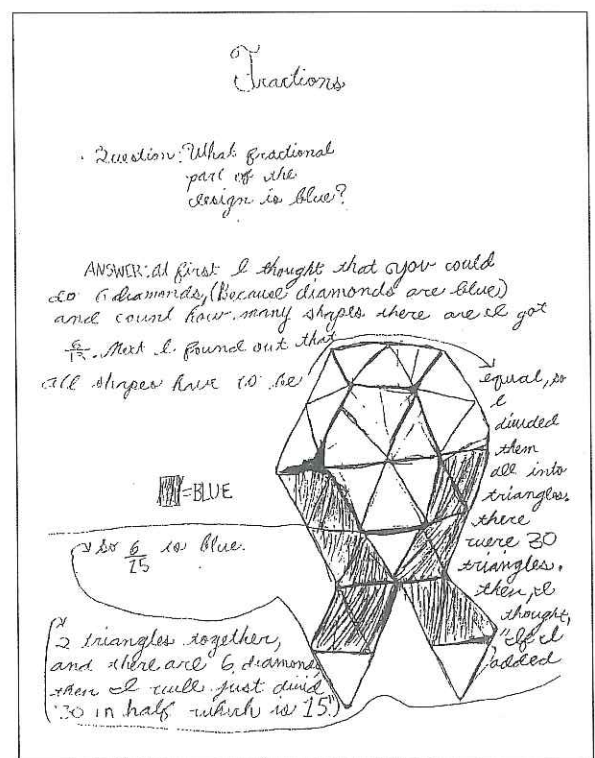 Fractions
Question: What fractional
part of the
design is blue?
ANSWER: At first I thought that you could
do 6 diamonds, (Because diamonds are blue)
and count how many shapes there are I got
6/13. Next I found out that
all shapes have to be
equal, so
I
divided
them
all into
triangles.
there
were 30
triangles.
then, I
thought,
"If I
added
2 triangles together,
and there are 6 diamonds
then I will just divid
30 in half which is 15.)
so 6/15 is blue.
=BLUE